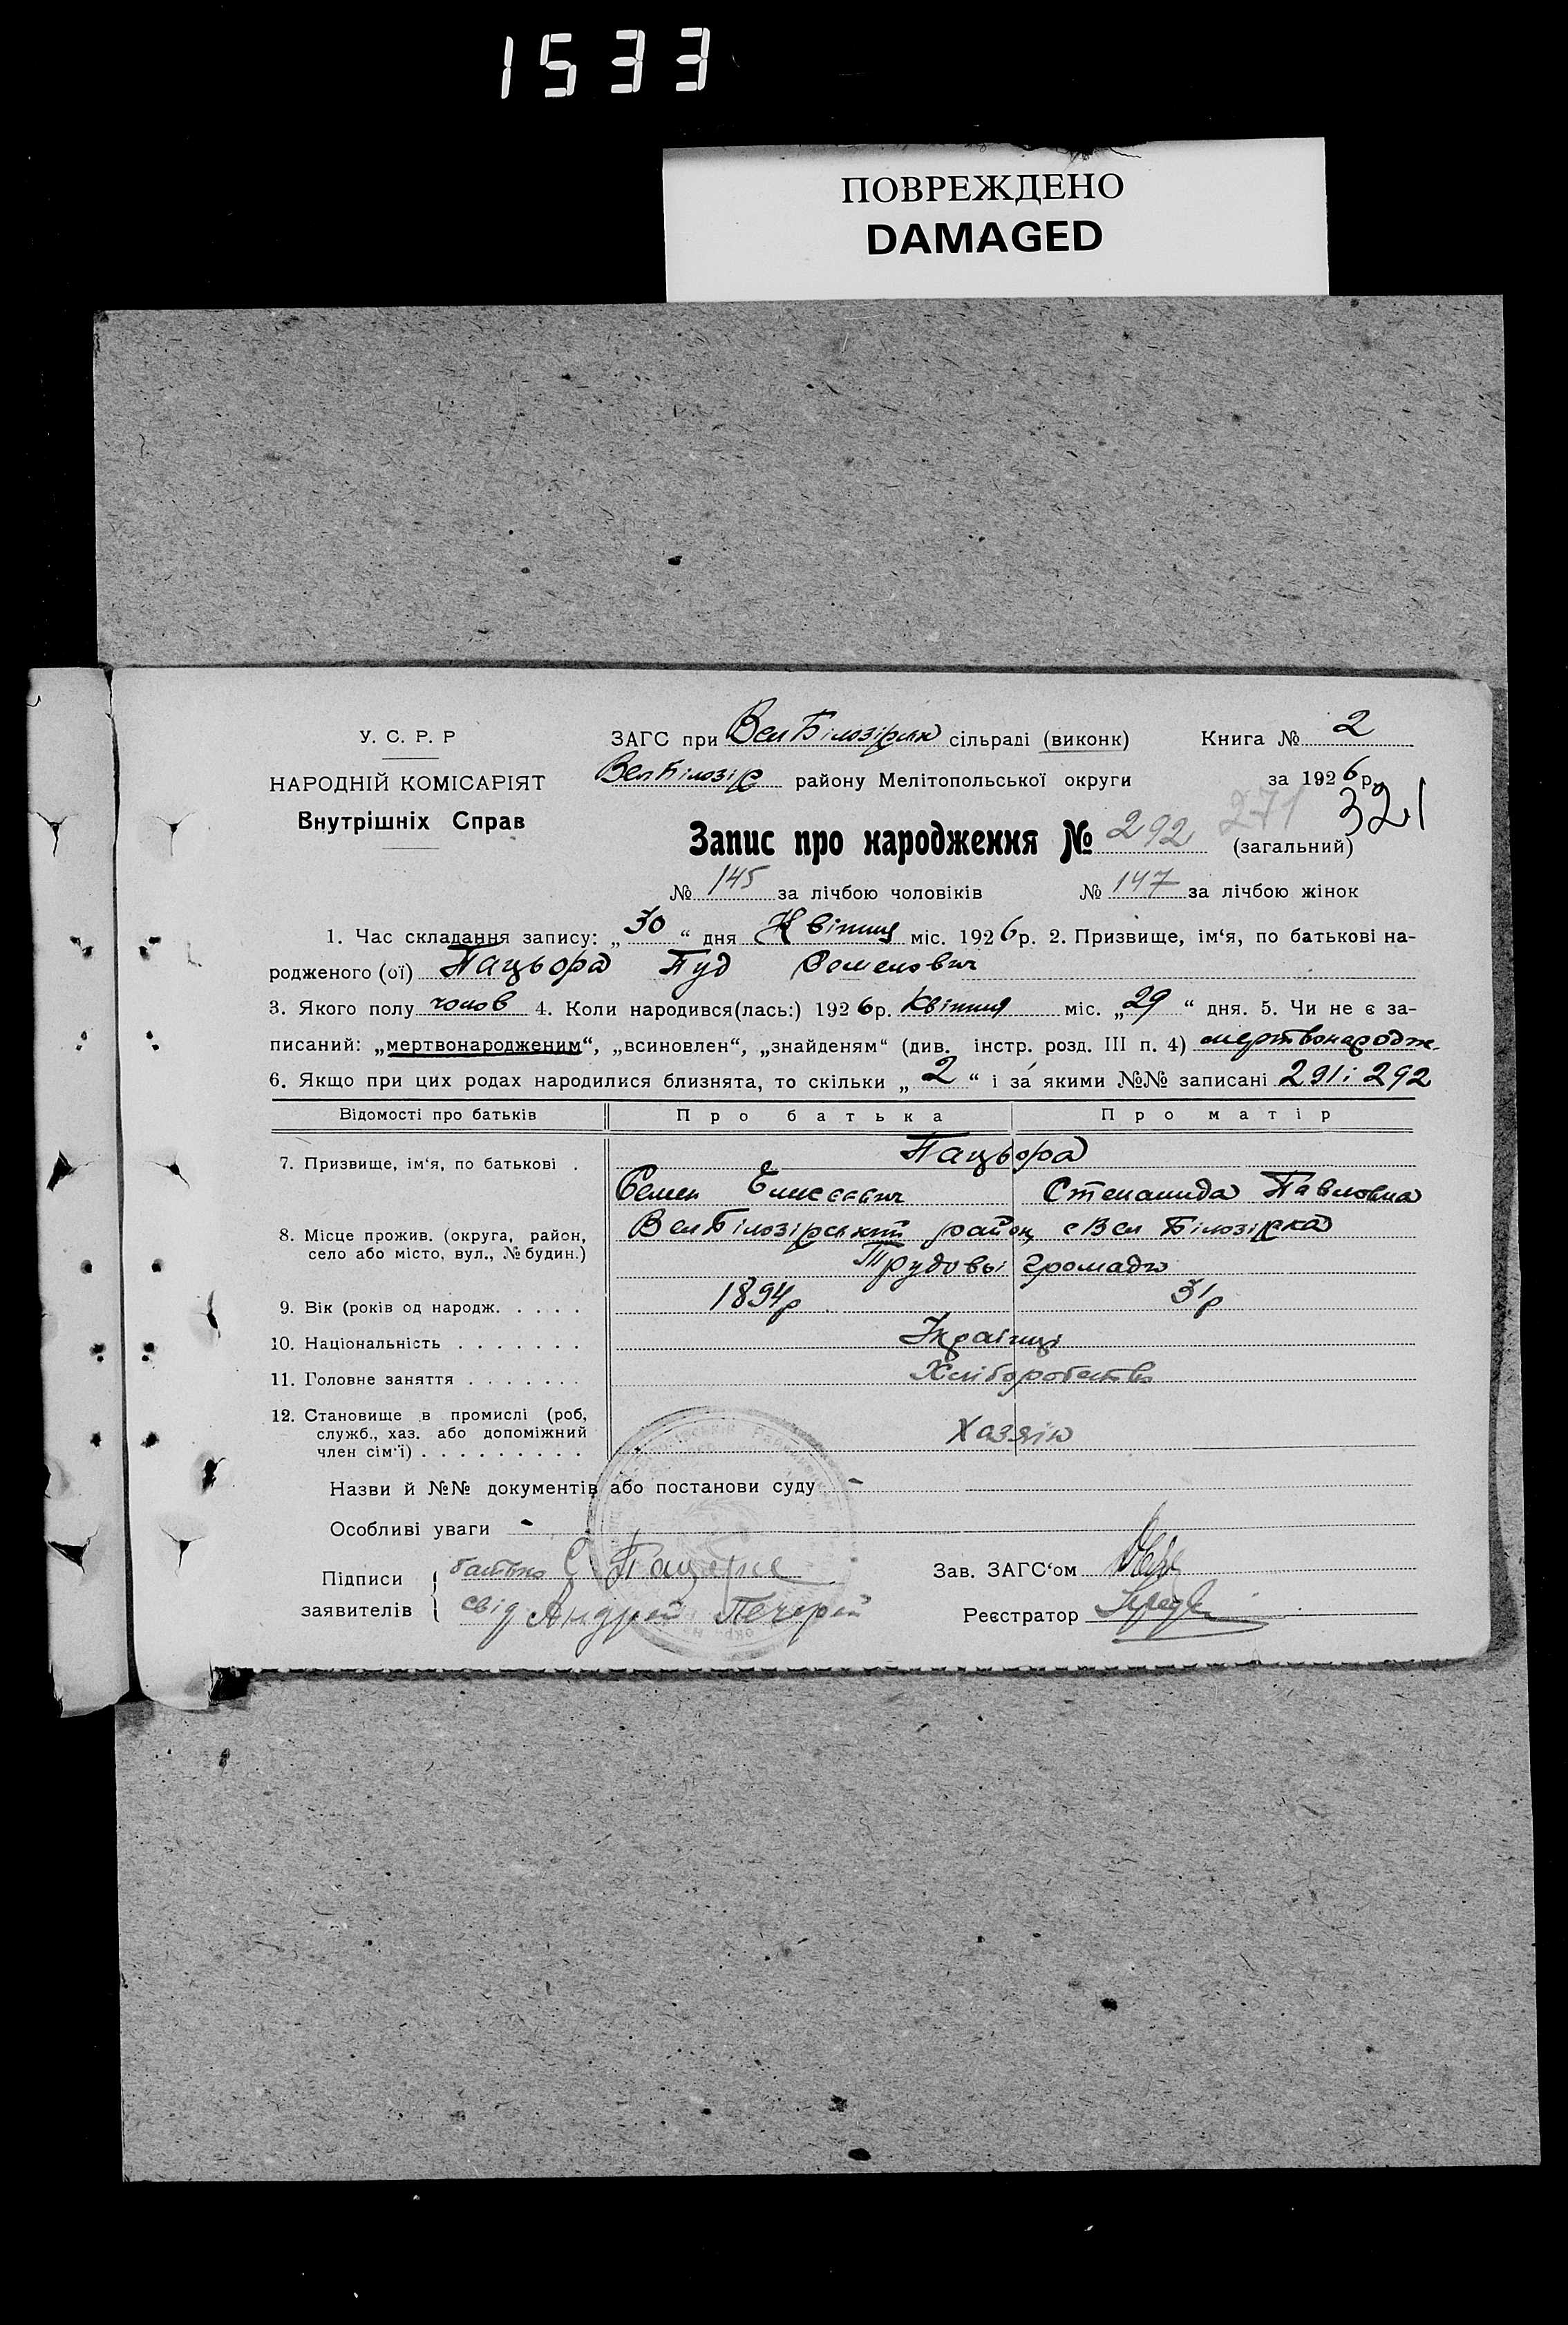 1533
ПОВРЕЖДЕНО
DAMAGED
У. С. Р. Р
НАРОДНІЙ КОМІСАРІЯТ
Внутрішніх Справ
ЗАГС при Вел Білозірськ сільраді (виконк) Книга № 2
Вел Білозір району Мелітопольської округи за 1926 р.
271 321
Запис про народження № 292 (загальний)
№ 145 за лічбою чоловіків № 147 за лічбою жінок
1. Час складання запису: „30“ дня Квітня міс. 1926 р. 2. Призвище, ім‘я, по батькові на-
родженого (ої) Пацьора Пуд Семенович
3. Якого полу чолов 4. Коли народився(лась:) 1926 р. Квітня міс. „29“ дня. 5. Чи не є за-
писаний: „мертвонародженим“, „всиновлен“, „знайденям“ (див. інстр. розд. III п. 4) мертвонародж.
6. Якщо при цих родах народилися близнята, то скільки „2“ і за якими №№ записані 291 і 292
Відомості про батьків Про батька Про матір
7. Призвище, ім‘я, по батькові . Пацьора
Семен Елисеевич Степанида Павловна
8. Місце прожив. (округа, район,
село або місто, вул., № будин.)
Вел Білозірський район, с Вел Білозірка
Трудовы громади
9. Вік (років од народж. . . . . 1894р. 31р
10. Національність . . . . . . . Українці
11. Головне заняття . . . . . . . Хліборобство
12. Становище в промислі (роб,
служб., хаз. або допоміжний
член сім‘ї) . . . . . . . . . Хазяін
Назви й №№ документів або постанови суду -
Особливі уваги -
Підписи
заявителів
батько С Пацера
свід Андрей Печерій
Зав. ЗАГС‘ом
Реєстратор